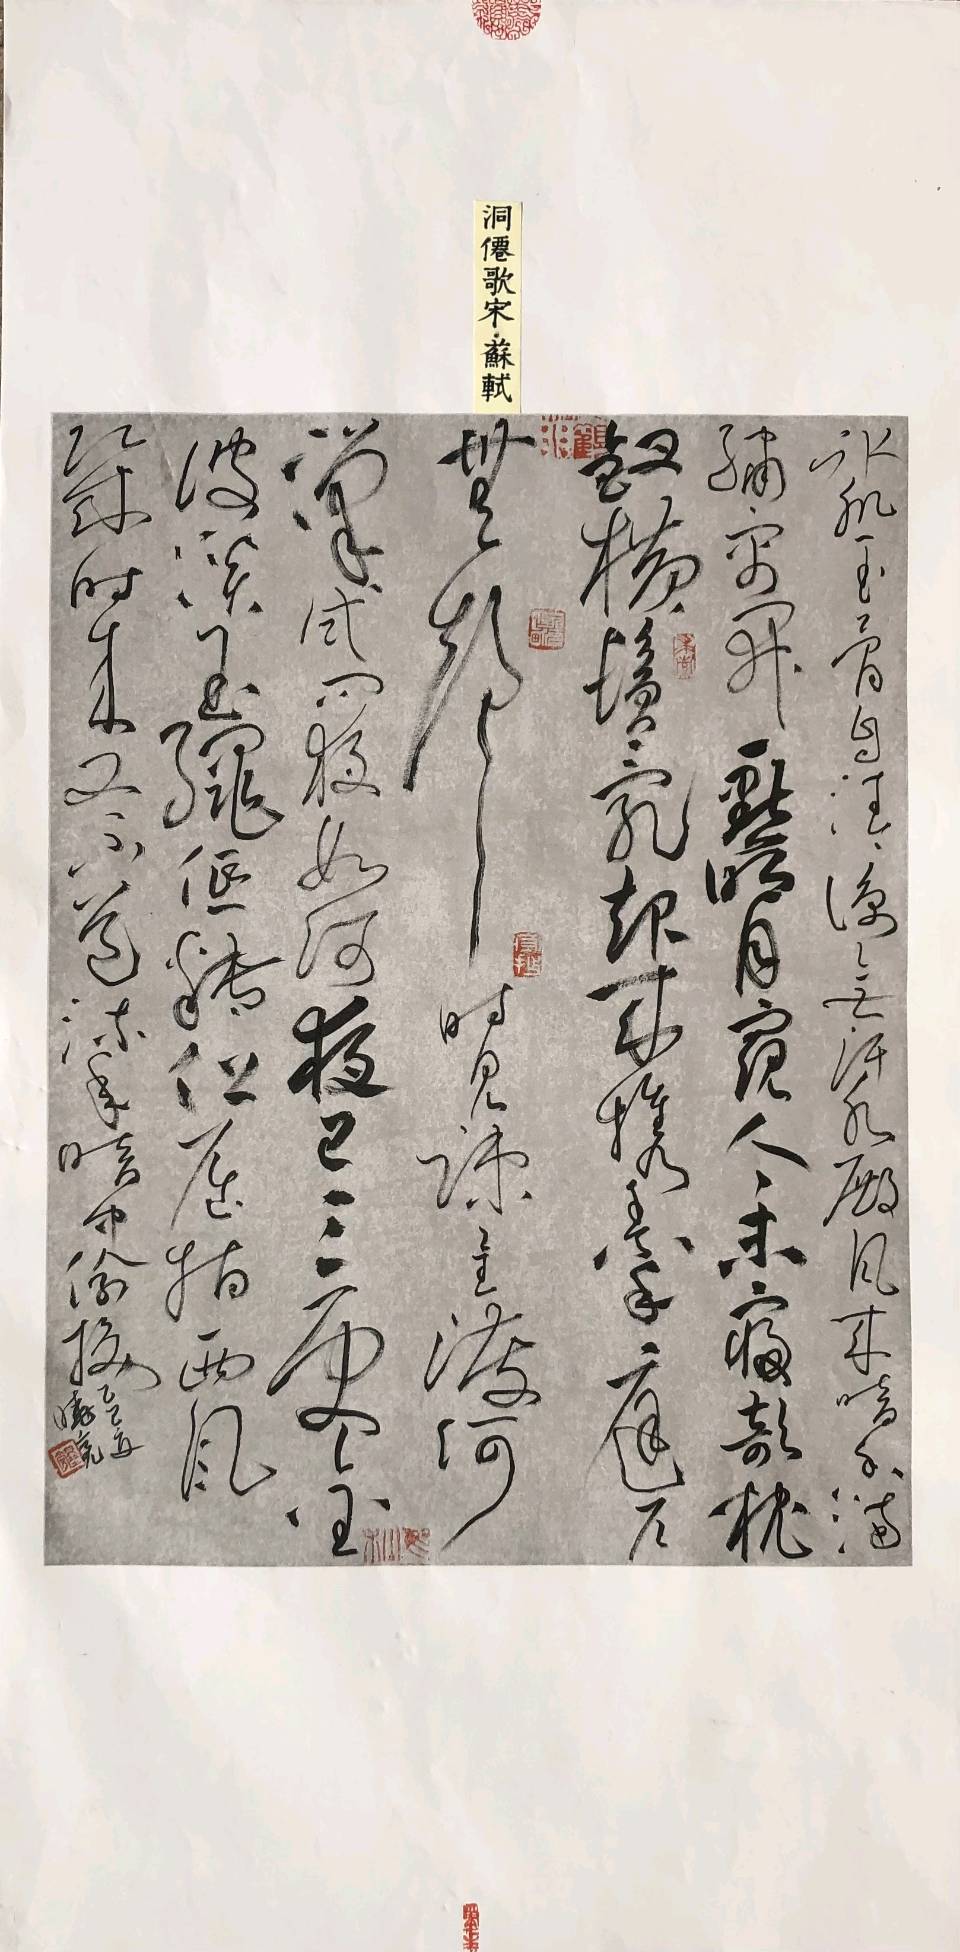 洞僊歌宋·蘇軾
冰肌玉骨自清涼無汗水殿風來暗香滿
繡簾開一點明月窺人人未寢欹枕
釵橫鬢亂起來攜素手庭戶
無聲時見疏星渡河
漢試問夜如何夜已三更金
波淡玉繩低轉但屈指西風
幾時來又不道流年暗中偷換
乙巳夏
曉亮